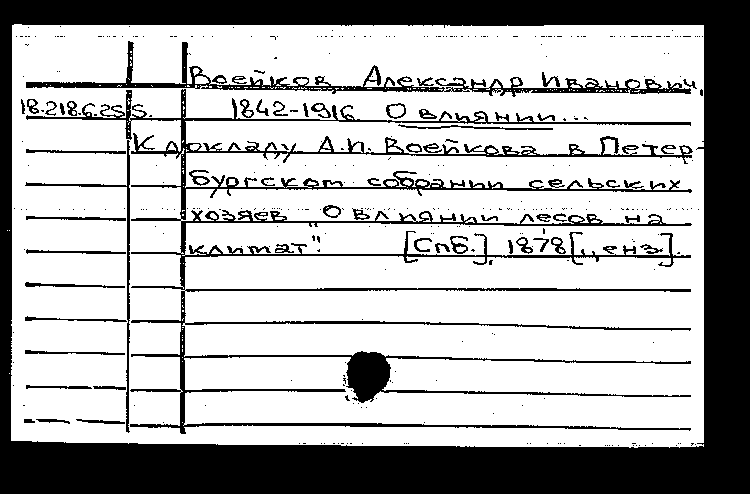 Воейков, Александр Иванович,
18.218.6.25 S. 1842-1916 О влиянии...
К докладу А.И. Воейкова в Петер-
бургском собрании сельских
хозяев „О влиянии лесов на
климат". [Спб.], 1878 [ценз.].